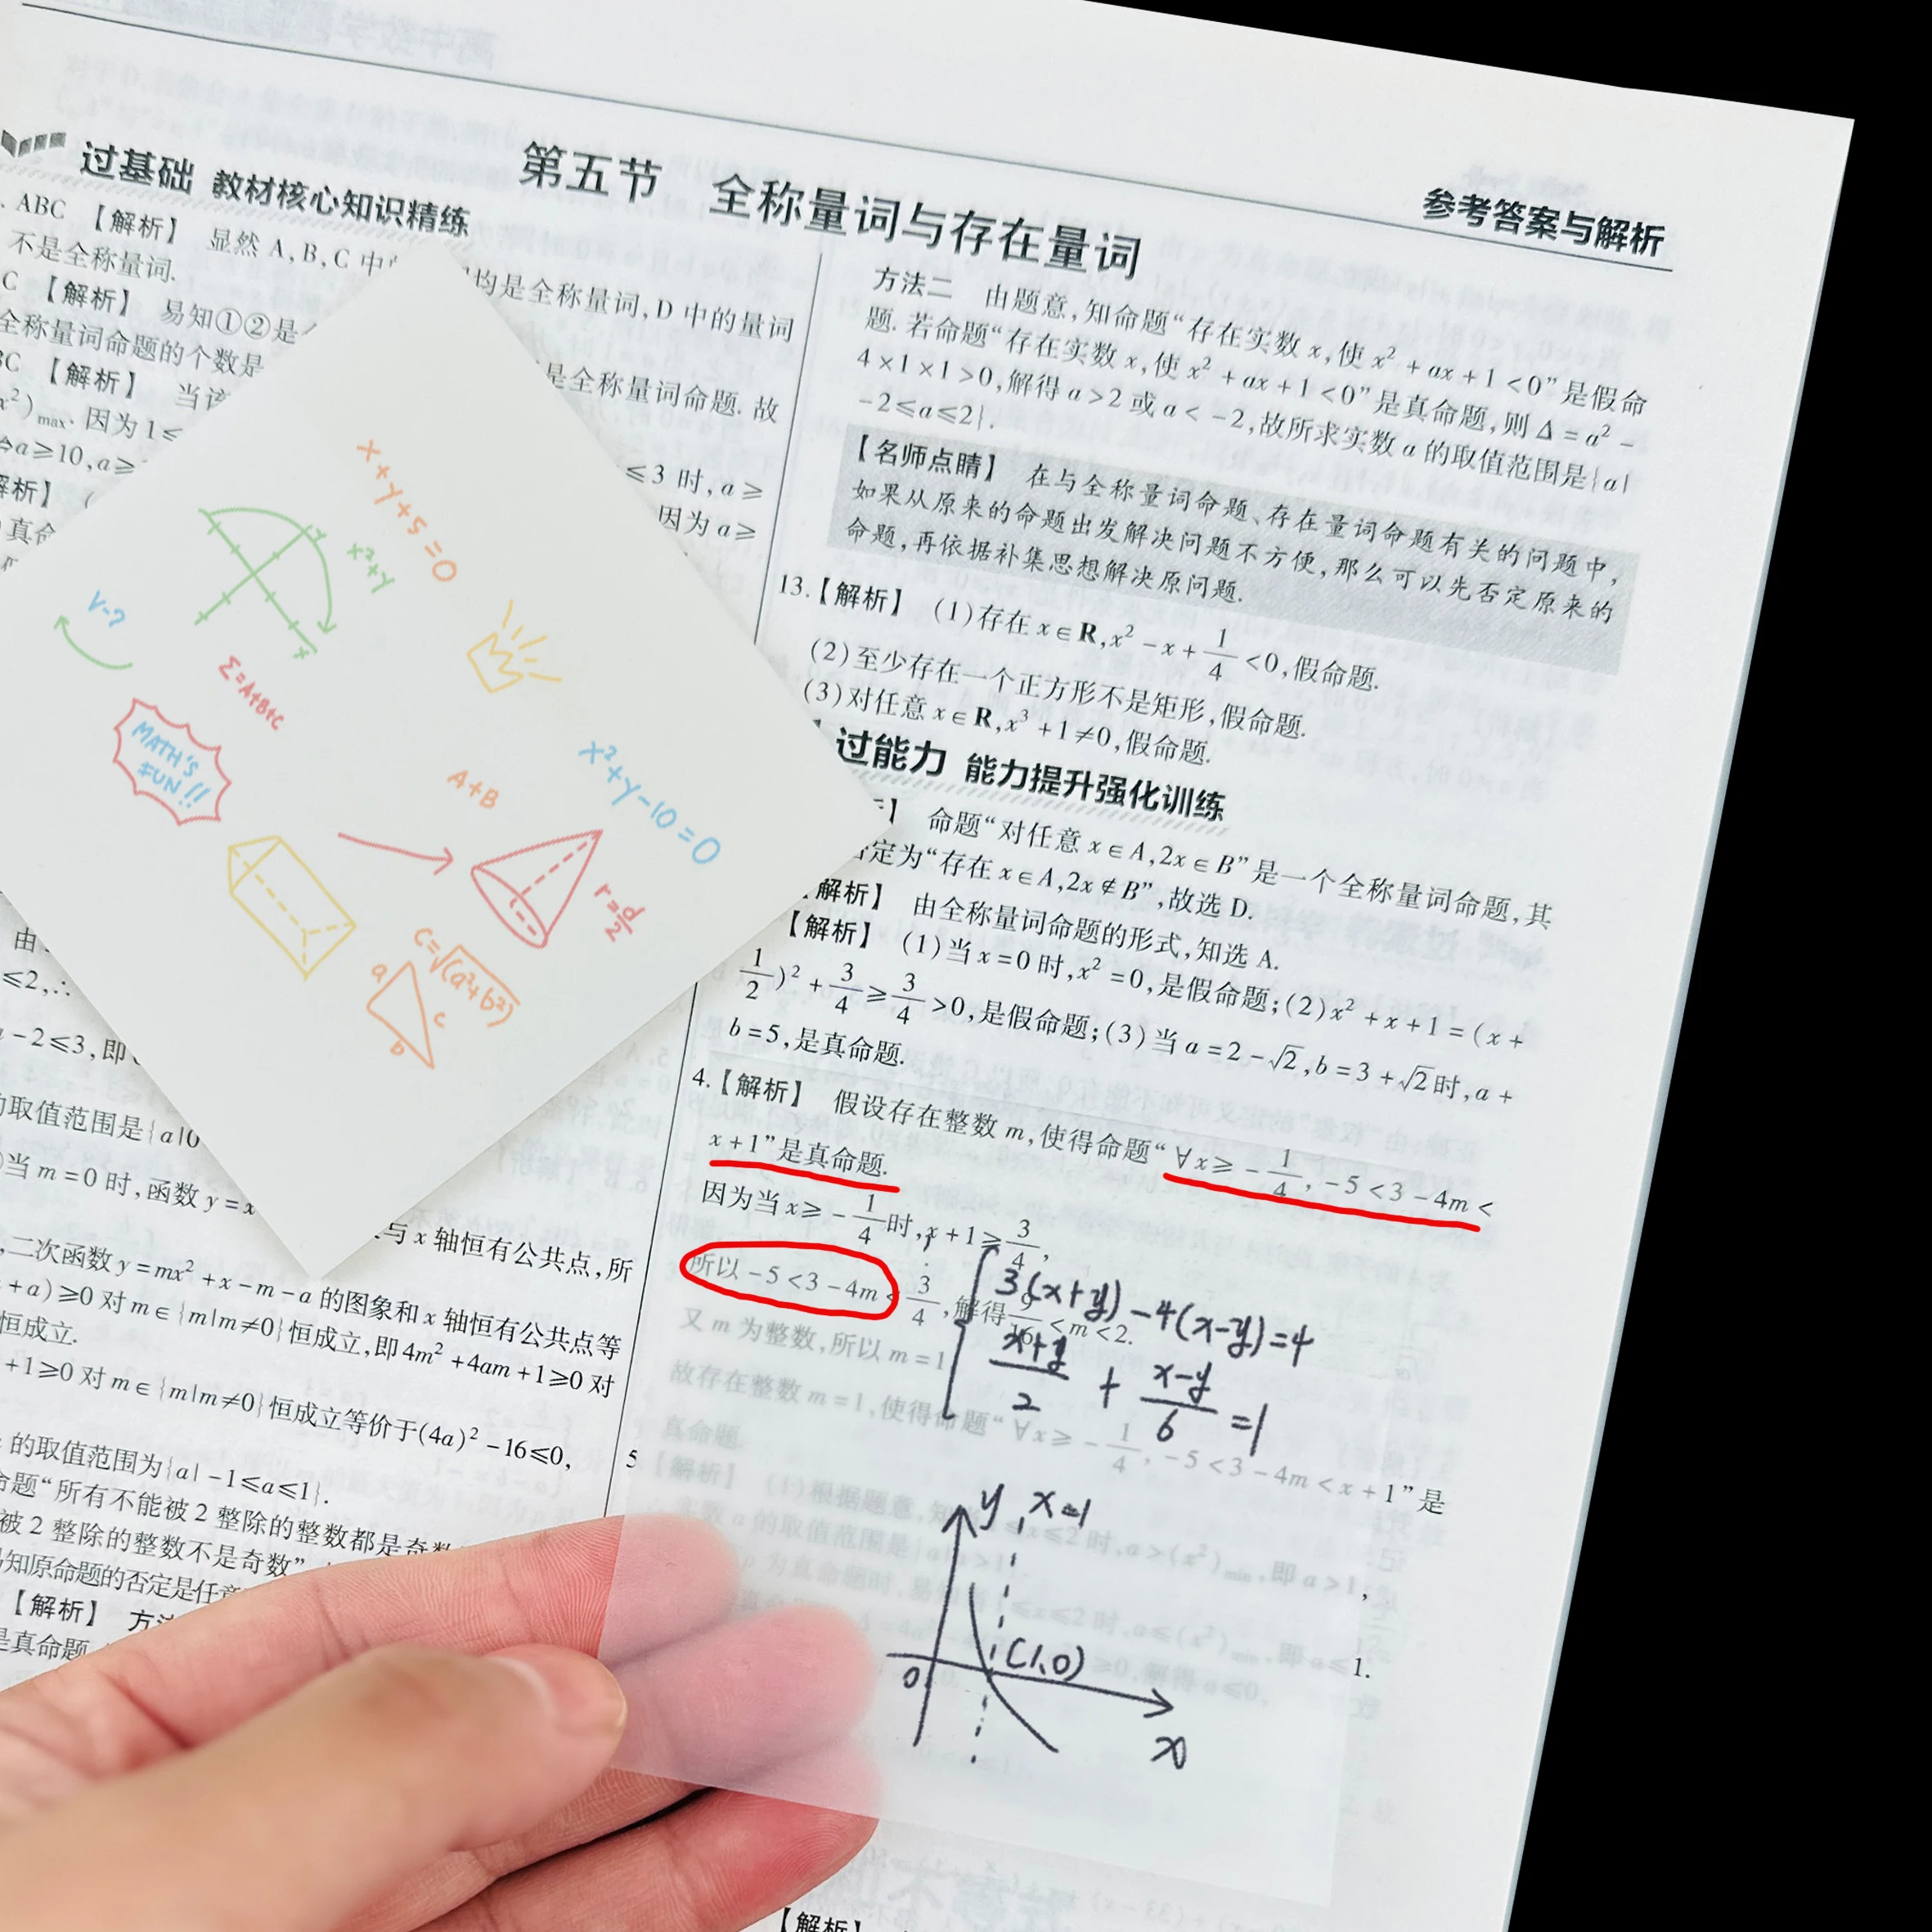 参考答案与解析
第五节 全称量词与存在量词
过基础 教材核心知识精练
. ABC 【解析】 显然 A, B, C 中
均是全称量词, D 中的量词
不是全称量词.
C 【解析】 易知①②是
是全称量词命题. 故
全称量词命题的个数是
BC 【解析】 当该
≤3 时, a≥
x²)max. 因为 1≤
因为 a≥
⇔a≥10, a≥
解析】 (
真命
x+y+5=0
x²+y
x
V-?
Σ=A+B+C
MATH'S
FUN!!
A+B
x²+y-10=0
r=d/2
C=√(a²+b²)
a
c
b
由
≤2, ∴
a-2≤3, 即
的取值范围是{a|0
当 m=0 时, 函数 y=x
与 x 轴恒有公共点, 所
, 二次函数 y=mx²+x-m-a 的图象和 x 轴恒有公共点等
+a)≥0 对 m∈{m|m≠0}恒成立, 即 4m²+4am+1≥0 对
恒成立.
+1≥0 对 m∈{m|m≠0}恒成立等价于(4a)²-16≤0,
的取值范围为{a|-1≤a≤1}.
命题“所有不能被 2 整除的整数都是奇数
被 2 整除的整数不是奇数”
易知原命题的否定是任意
【解析】 方法
是真命题
方法二 由题意, 知命题“存在实数 x, 使 x²+ax+1<0”是假命
题. 若命题“存在实数 x, 使 x²+ax+1<0”是真命题, 则 Δ=a²-
4×1×1>0, 解得 a>2 或 a<-2, 故所求实数 a 的取值范围是{a|
-2≤a≤2}.
【名师点睛】 在与全称量词命题、存在量词命题有关的问题中,
如果从原来的命题出发解决问题不方便, 那么可以先否定原来的
命题, 再依据补集思想解决原问题.
13.【解析】 (1)存在 x∈R, x²-x+1/4<0, 假命题.
(2)至少存在一个正方形不是矩形, 假命题.
(3)对任意 x∈R, x³+1≠0, 假命题.
过能力 能力提升强化训练
】 命题“对任意 x∈A, 2x∈B”是一个全称量词命题, 其
否定为“存在 x∈A, 2x∉B”, 故选 D.
解析】 由全称量词命题的形式, 知选 A.
【解析】 (1)当 x=0 时, x²=0, 是假命题; (2)x²+x+1=(x+
1/2)²+3/4≥3/4>0, 是假命题; (3)当 a=2-√2, b=3+√2时, a+
b=5, 是真命题.
4.【解析】 假设存在整数 m, 使得命题“∀x≥-1/4, -5<3-4m<
x+1”是真命题.
因为当 x≥-1/4时, x+1≥3/4,
所以 -5<3-4m<3/4, 解得9/16<m<2.
又 m 为整数, 所以 m=1
故存在整数 m=1, 使得命题“∀x≥-1/4, -5<3-4m<x+1”是
真命题.
5
【解析】 (1)根据题意, 知当1≤x≤2 时, a>(x²)min, 即 a>1,
实数 a 的取值范围是{a|a>1}.
p 为真命题时, 易知当1≤x≤2 时, a≤(x²)min, 即 a≤1.
≥0, 解得 a≤0,
3(x+y)-4(x-y)=4
x+y/2+x-y/6=1
y x=1
(1,0)
0
x
【解析】